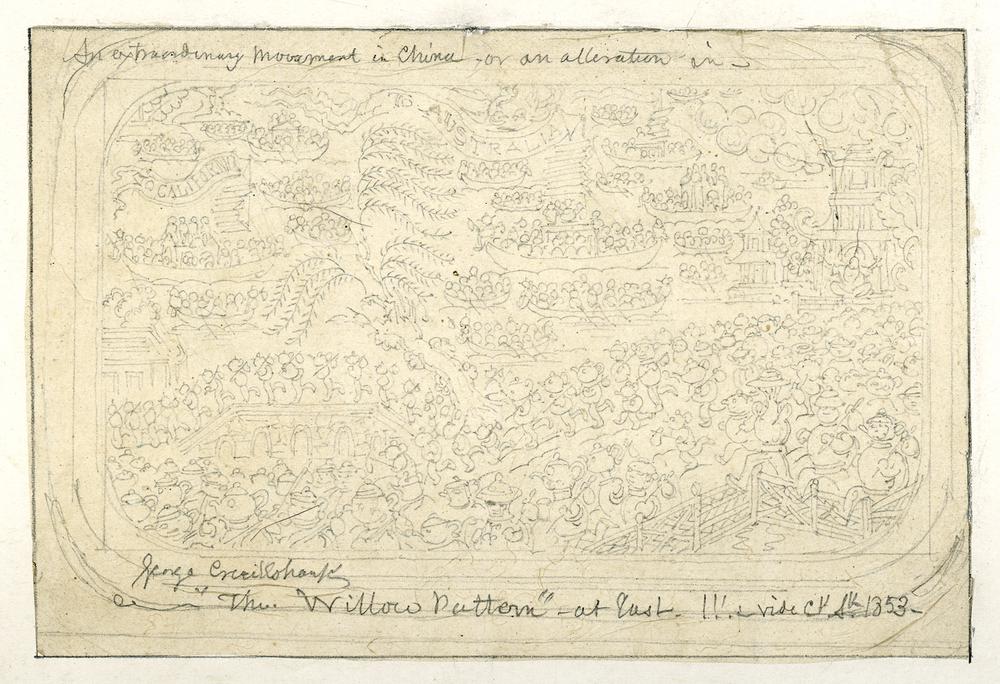 An extraordinary Movement in China - or an alteration in -
TO AUSTRALIA
TO CALIFORNIA
George Cruikshank
"The Willow Pattern" - at last - !! - vide 1853 -